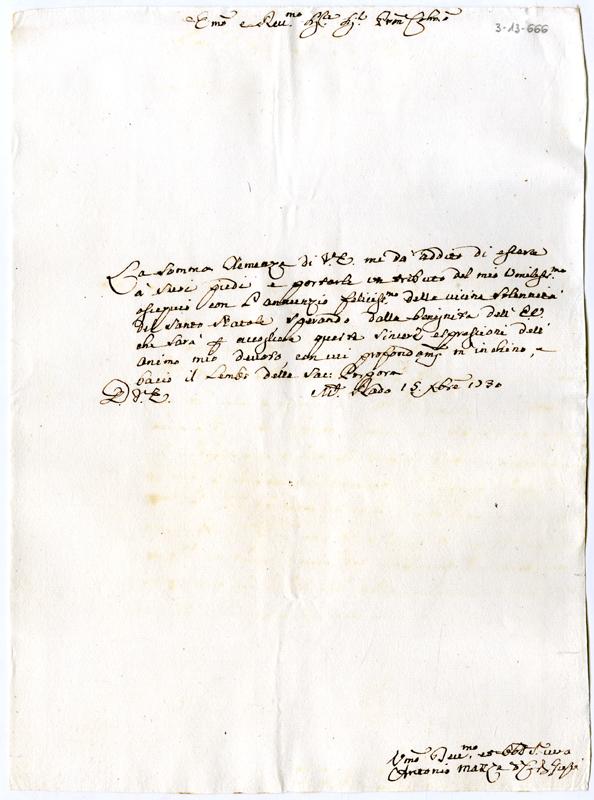 Emo e Reu.mo
3-13-666
La Somma Clemenza di V.E. mi dà addito di essere
a suoi piedi e portarle un tributo del mio Umiliss.mo
ossequio con l'annunzio feliciss.mo delle vicine solennità
del Santo Natale sperando dalla benignità dell' E.V.
che sarà accogliere queste sincere espressioni dell'
animo mio devoto, con cui profondam.e m'inchino, e
bacio il Lembo della Sac: Porpora
D.V.E. Rado 15 Xbre 1730
Vmo Deu.mo et Obb. Serv.
Antonio